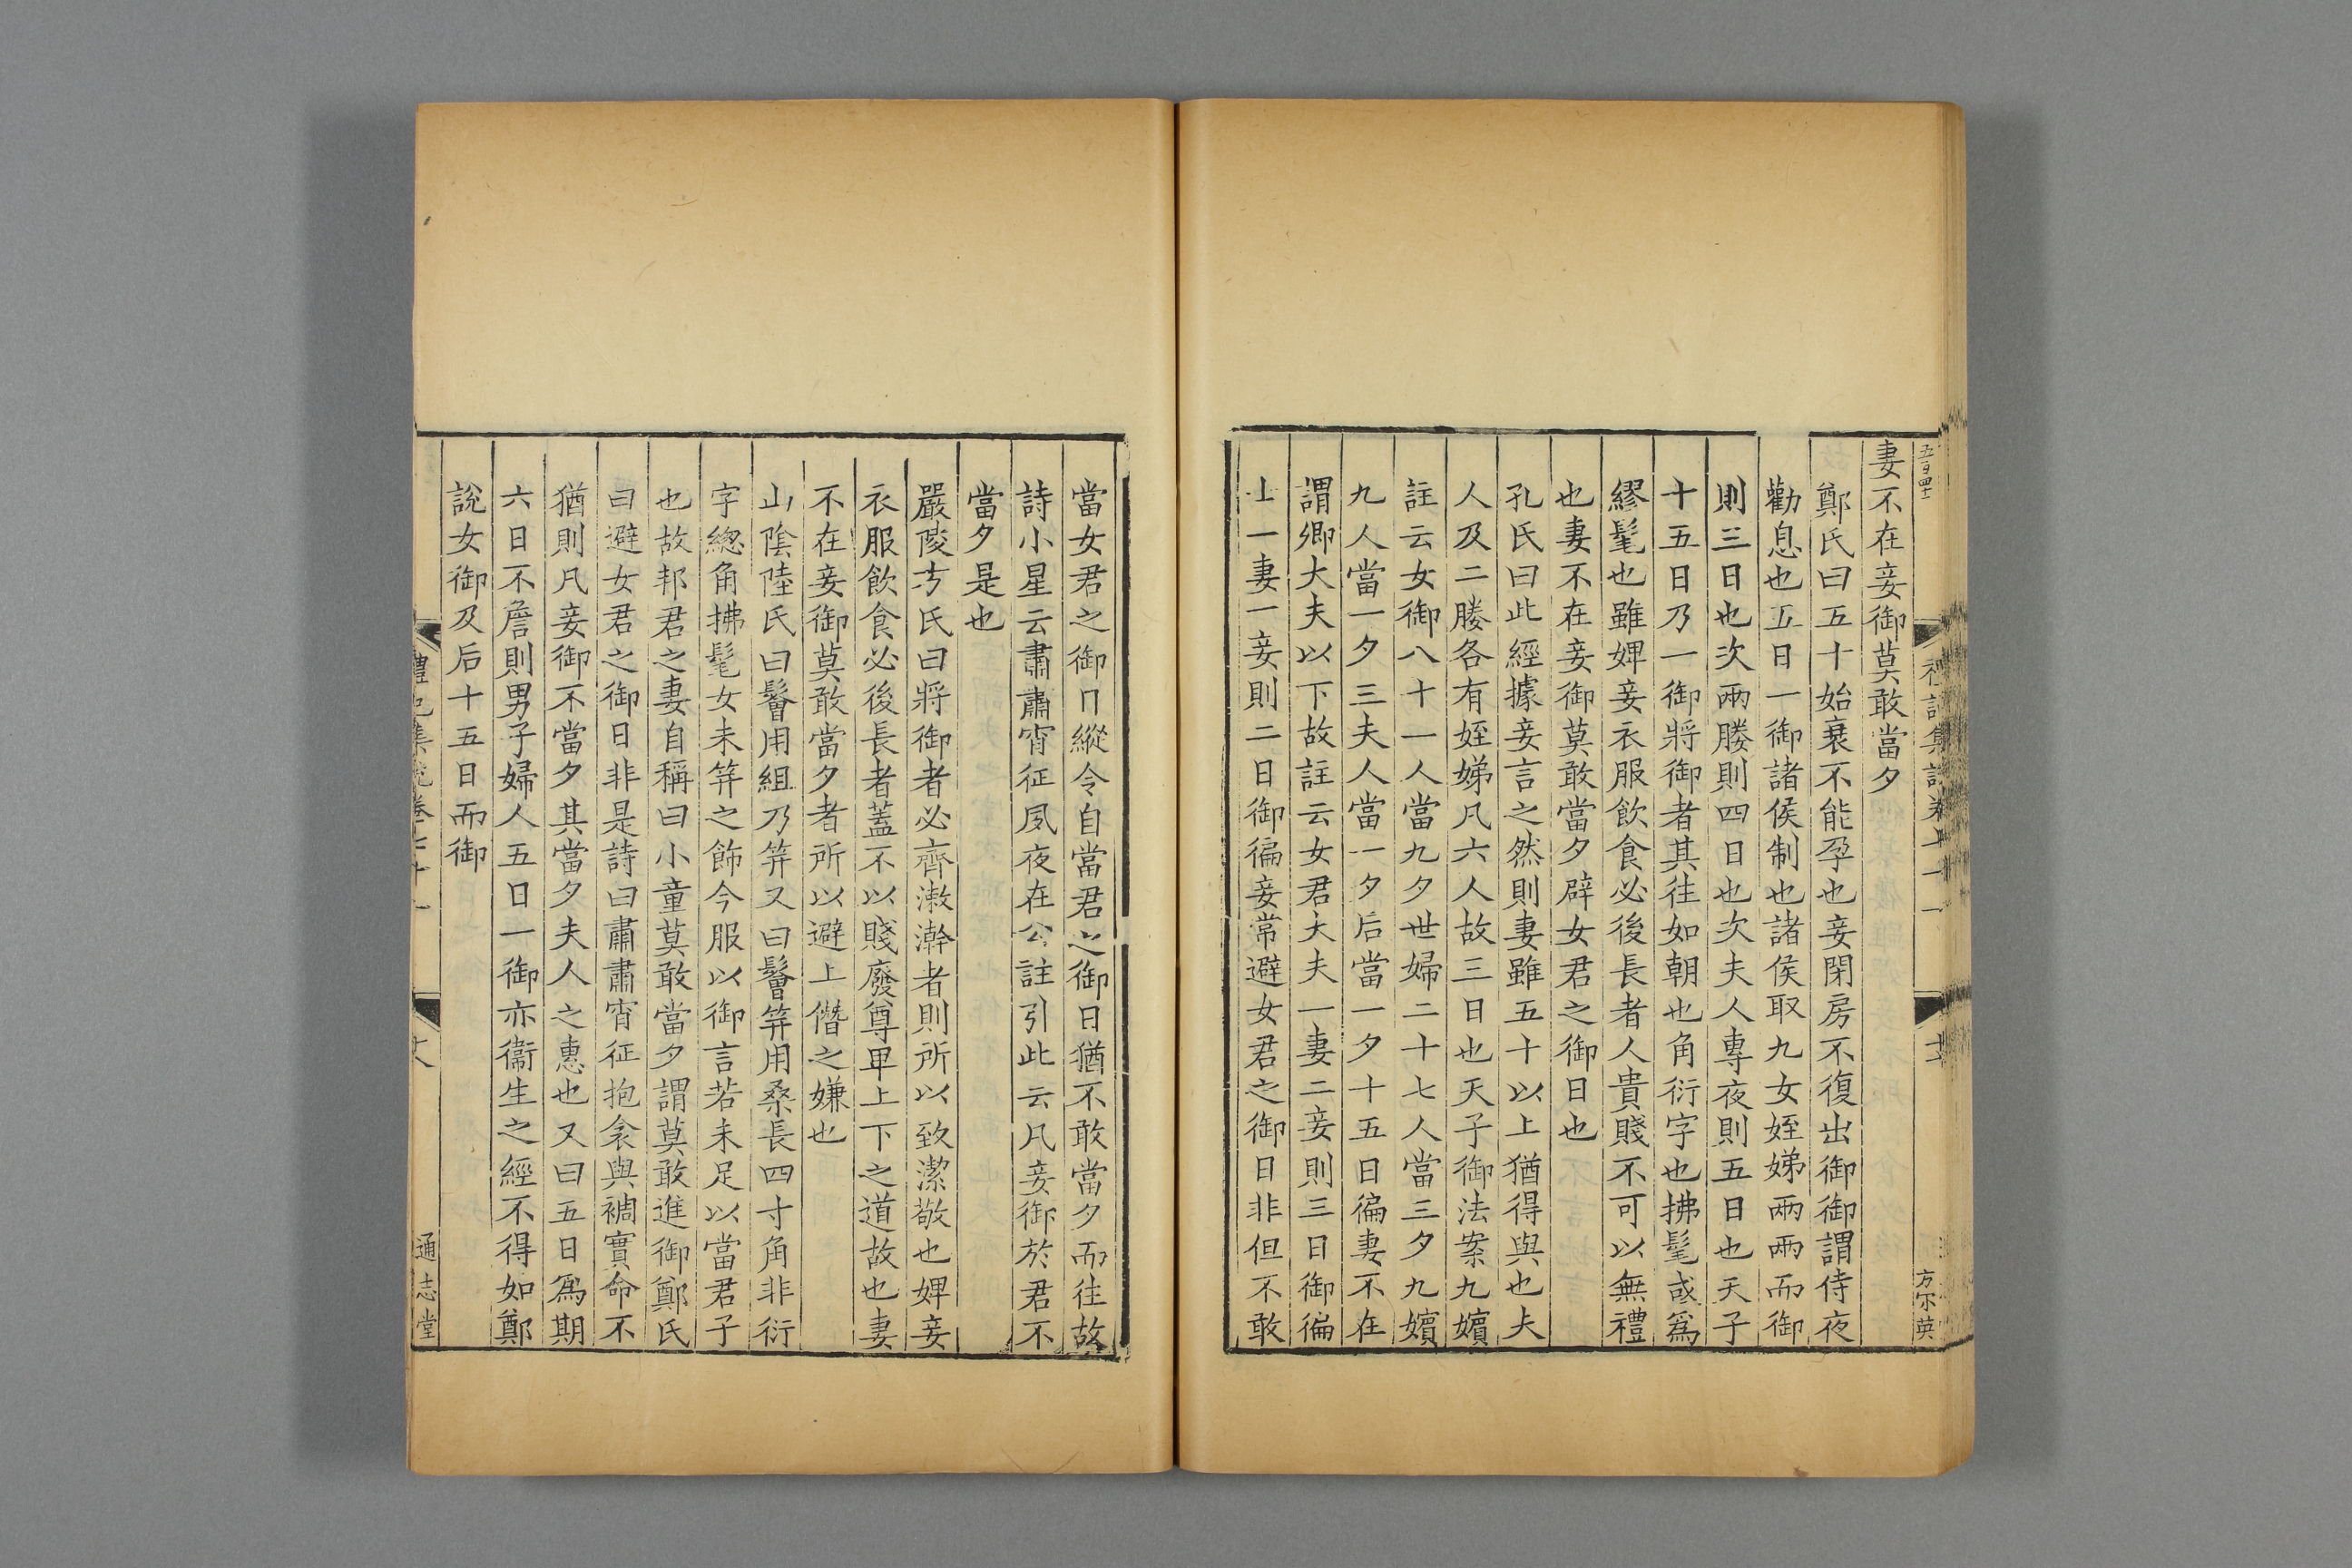 妻不在妾御莫敢當夕
鄭氏曰五十始衰不能孕也妾閉房不復出御御謂侍夜
勸息也五日一御諸侯制也諸侯取九女姪娣兩兩而御
則三日也次兩媵則四日也次夫人專夜則五日也天子
十五日乃一御將御者其往如朝也角衍字也拂髦或爲
繆髦也雖婢妾衣服飲食必後長者人貴賤不可以無禮
也妻不在妾御莫敢當夕辟女君之御日也
孔氏曰此經據妾言之然則妻雖五十以上猶得與也夫
人及二媵各有姪娣凡六人故三日也天子御法案九嬪
註云女御八十一人當九夕世婦二十七人當三夕九嬪
九人當一夕三夫人當一夕后當一夕十五日徧妻不在
謂卿大夫以下故註云女君大夫一妻二妾則三日御徧
士一妻一妾則二日御徧妾常避女君之御日非但不敢
方尔英
當女君之御日縱令自當君之御日猶不敢當夕而往故
詩小星云肅肅宵征夙夜在公註引此云凡妾御於君不
當夕是也
嚴陵方氏曰將御者必齊漱澣者則所以致潔敬也婢妾
衣服飲食必後長者蓋不以賤廢尊卑上下之道故也妻
不在妾御莫敢當夕者所以避上僭之嫌也
山陰陸氏曰鬠用組乃笄又曰鬠笄用桑長四寸角非衍
字總角拂髦女未笄之飾今服以御言若未足以當君子
也故邦君之妻自稱曰小童莫敢當夕謂莫敢進御鄭氏
曰避女君之御日非是詩曰肅肅宵征抱衾與裯實命不
猶則凡妾御不當夕其當夕夫人之惠也又曰五日爲期
六日不詹則男子婦人五日一御亦衞生之經不得如鄭
說女御及后十五日而御
通志堂